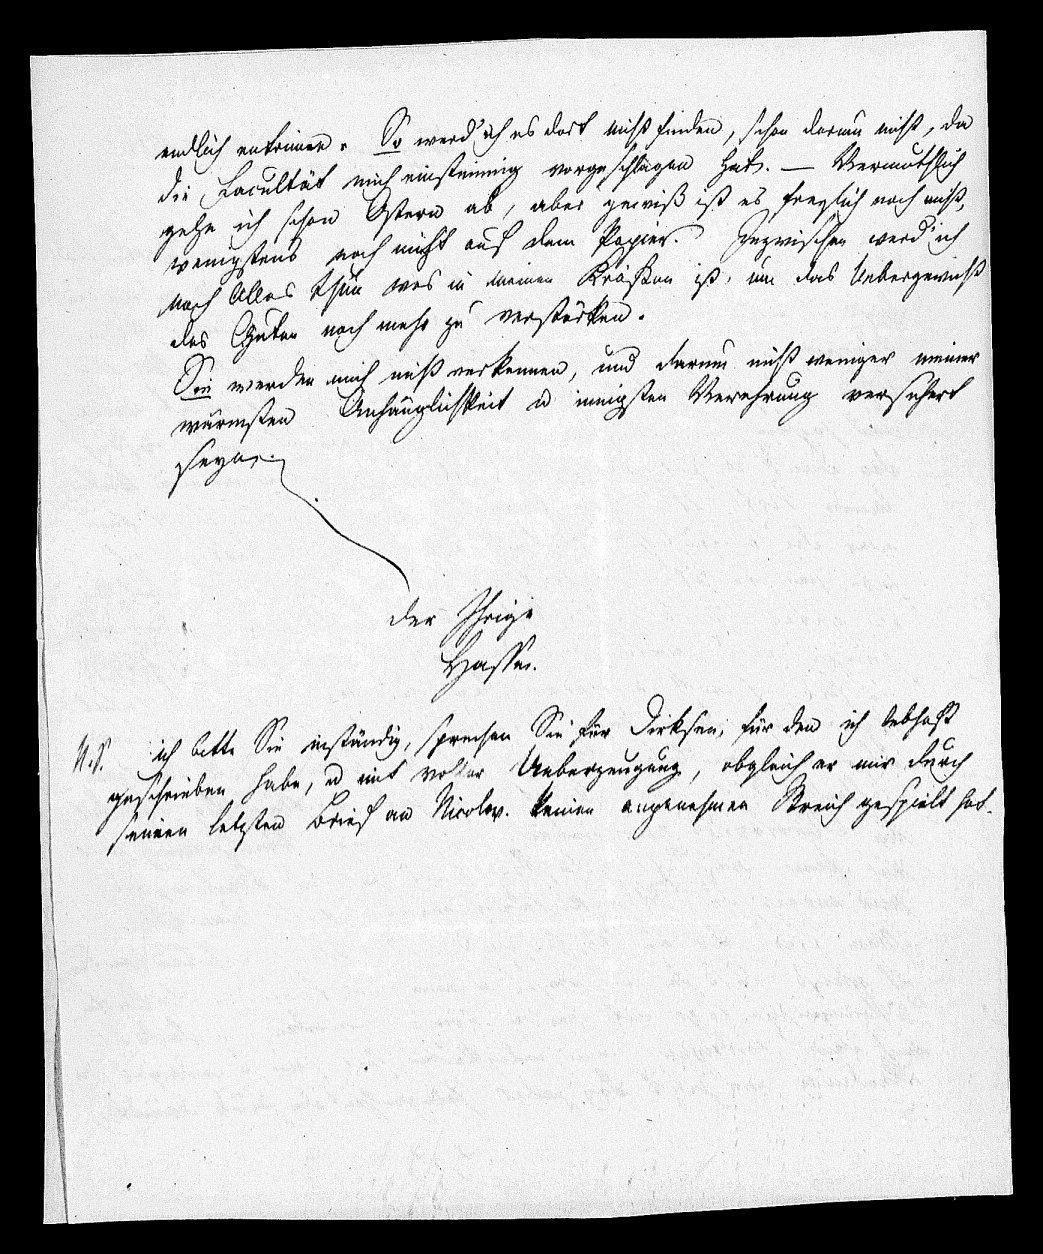 endlich entrinne. So werd' ich es dort nicht finden, schon darum nicht, da
die Facultät mich einstimmig vorgeschlagen hat. — Vermuthlich
gehe ich schon Ostern ab, aber gewiß ist es freylich noch nicht,
wenigstens noch nicht auf dem Papier. Inzwischen werd' ich
noch Alles thun was in meinen Kräften ist, um das Uebergewicht
des Guten noch mehr zu verstärken.
Sie werden mich nicht verkennen, und darum nicht weniger meiner
wärmsten Anhänglichkeit u innigsten Verehrung versichert
seyn.
der Ihrige
Hasse.
N.S. ich bitte Sie inständig, sprechen Sie für Dirksen, für den ich lebhaft
geschrieben habe, u mit voller Ueberzeugung, obgleich er mir durch
seinen letzten Brief an Nicolov. keinen angenehmen Streich gespielt hat.